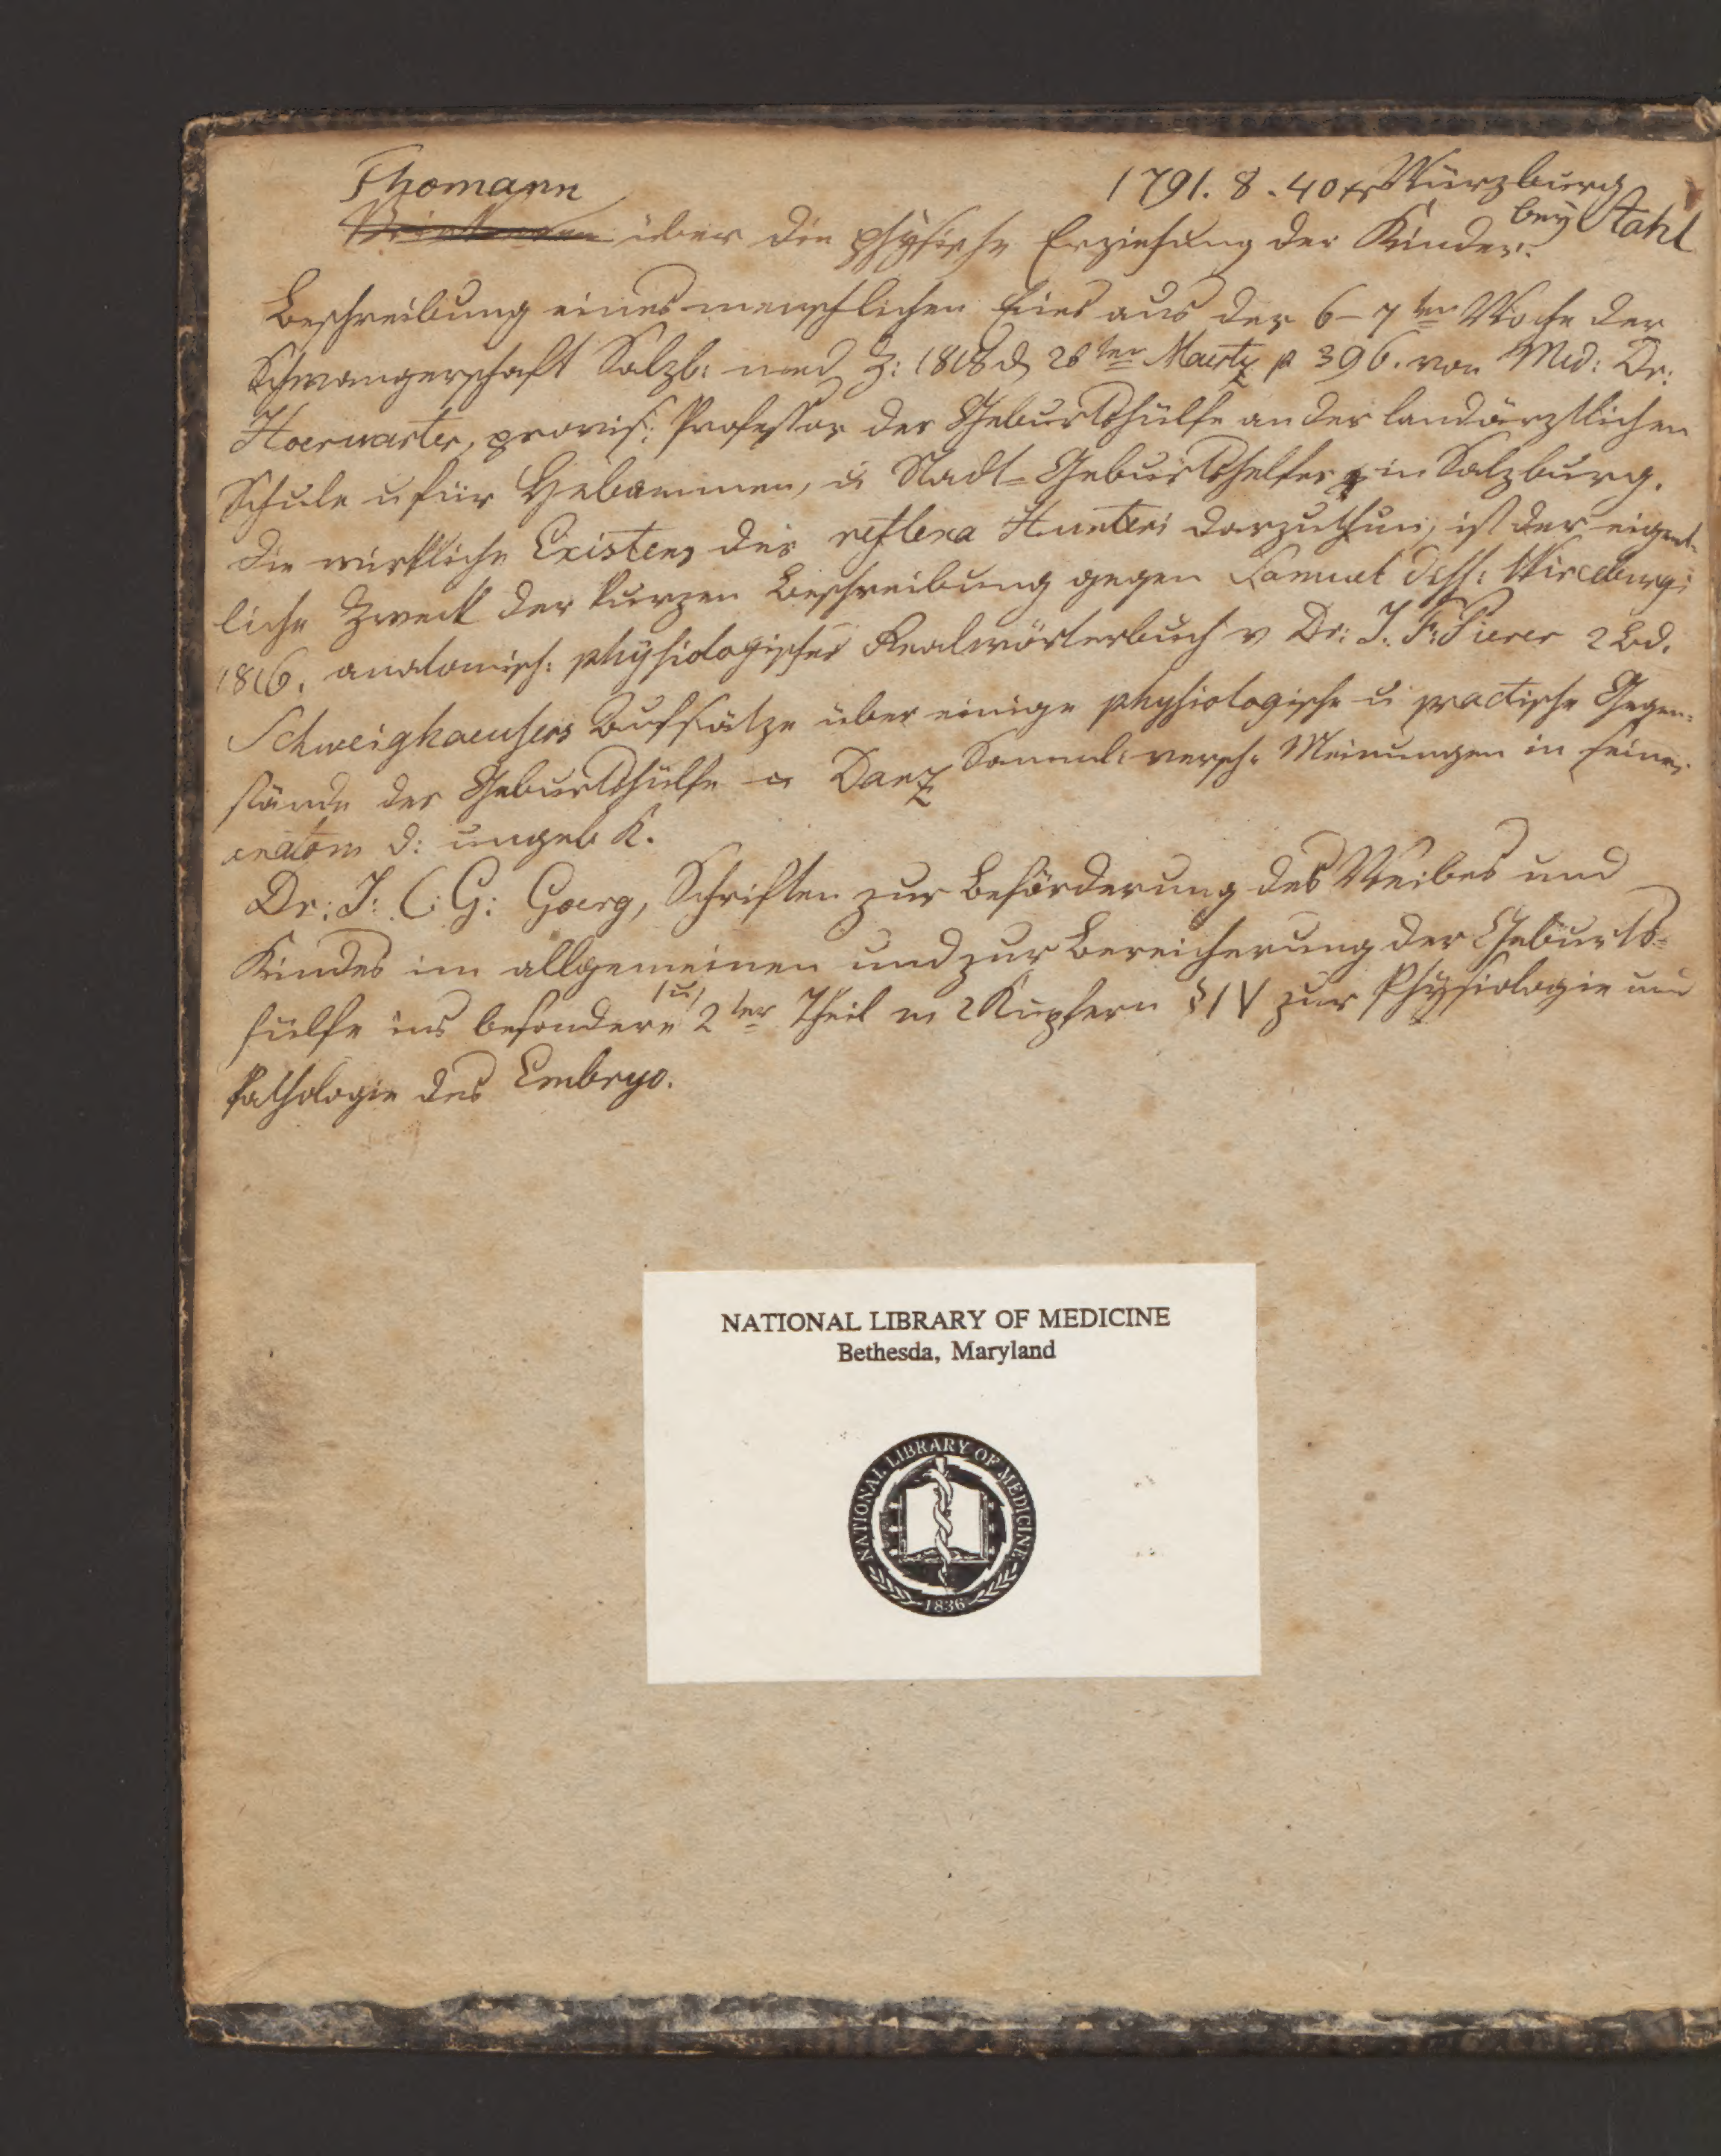 Thomann 1791. 8. 40 xr Würzburg
bey Stahl
über die physische Erziehung der Kinder.
Beschreibung eines menschlichen Eies aus der 6-7ten Woche der
Schwangerschaft Salzb: med. Z: 1818 d. 26ten Maertz p 396. von Med: Dr:
Hoerwarter, provis: Professor der Geburtshülfe an der landärztlichen
Schule u für Hebammen, u Stadt-Geburtshelfer in Salzburg.
Die wirkliche Existenz der reflexa Hunteri darzuthun, ist der eigent-
liche Zweck der kurzen Beschreibung gegen Samuel Diss: Wirceburgi
1816. anatomisch: physiologisches Realwörterbuch v Dr: J. F: Pierer 2 Bd.
Schweighaeusers Aufsätze über einige physiologische u practische Gegen-
stände der Geburtshülfe u Danz Samml: versch: Meinungen in seiner
anatom d: ungeb K.
Dr: J: C: G: Goerg, Schriften zur Beförderung des Weibes und
Kindes im allgemeinen und zur Bereicherung der Geburts-
hülfe ins besondere 1 u 2ter Theil m 2 Kupfern § IV zur Physiologie und
Pathologie des Embryo.
NATIONAL LIBRARY OF MEDICINE
Bethesda, Maryland
NATIONAL LIBRARY OF MEDICINE
1836